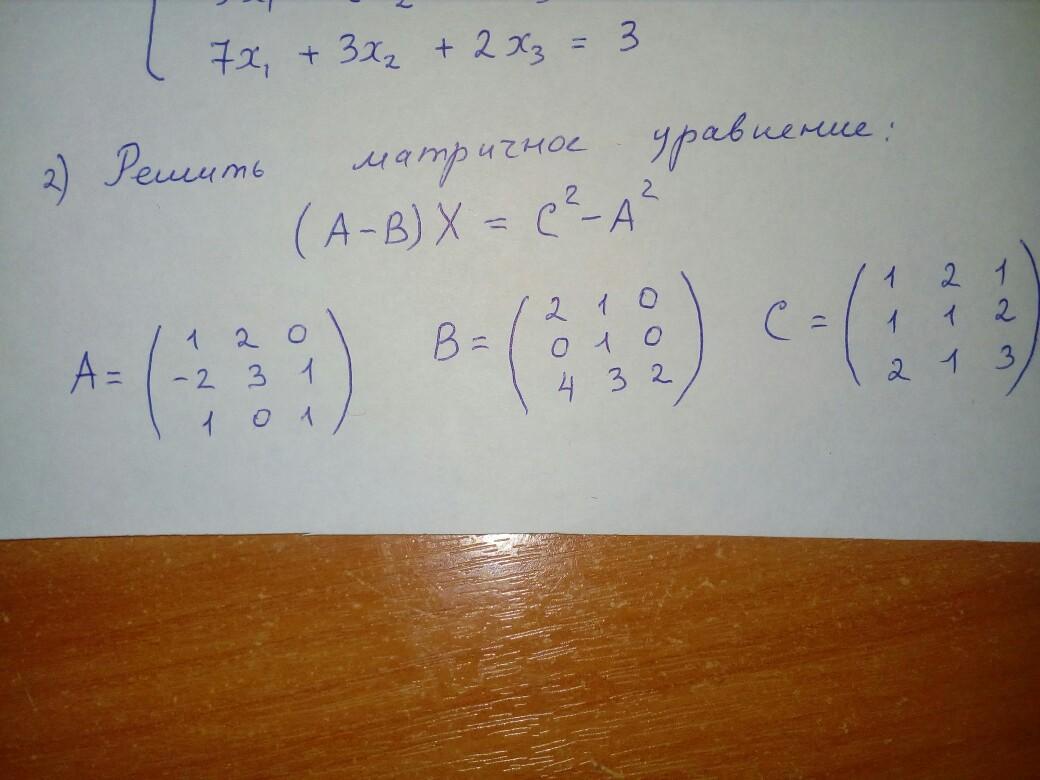 7x₁ + 3x₂ + 2x₃ = 3
2) Решить матричное уравнение:
(A-B)X = C²-A²
A = (1 2 0
-2 3 1
1 0 1)
B = (2 1 0
0 1 0
4 3 2)
C = (1 2 1
1 1 2
2 1 3)